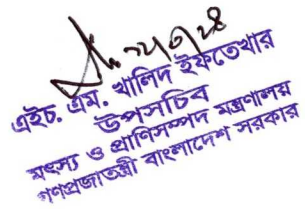 এইচ. এম. খালিদ ইফতেখার
উপসচিব
মৎস্য ও প্রাণিসম্পদ মন্ত্রণালয়
গণপ্রজাতন্ত্রী বাংলাদেশ সরকার